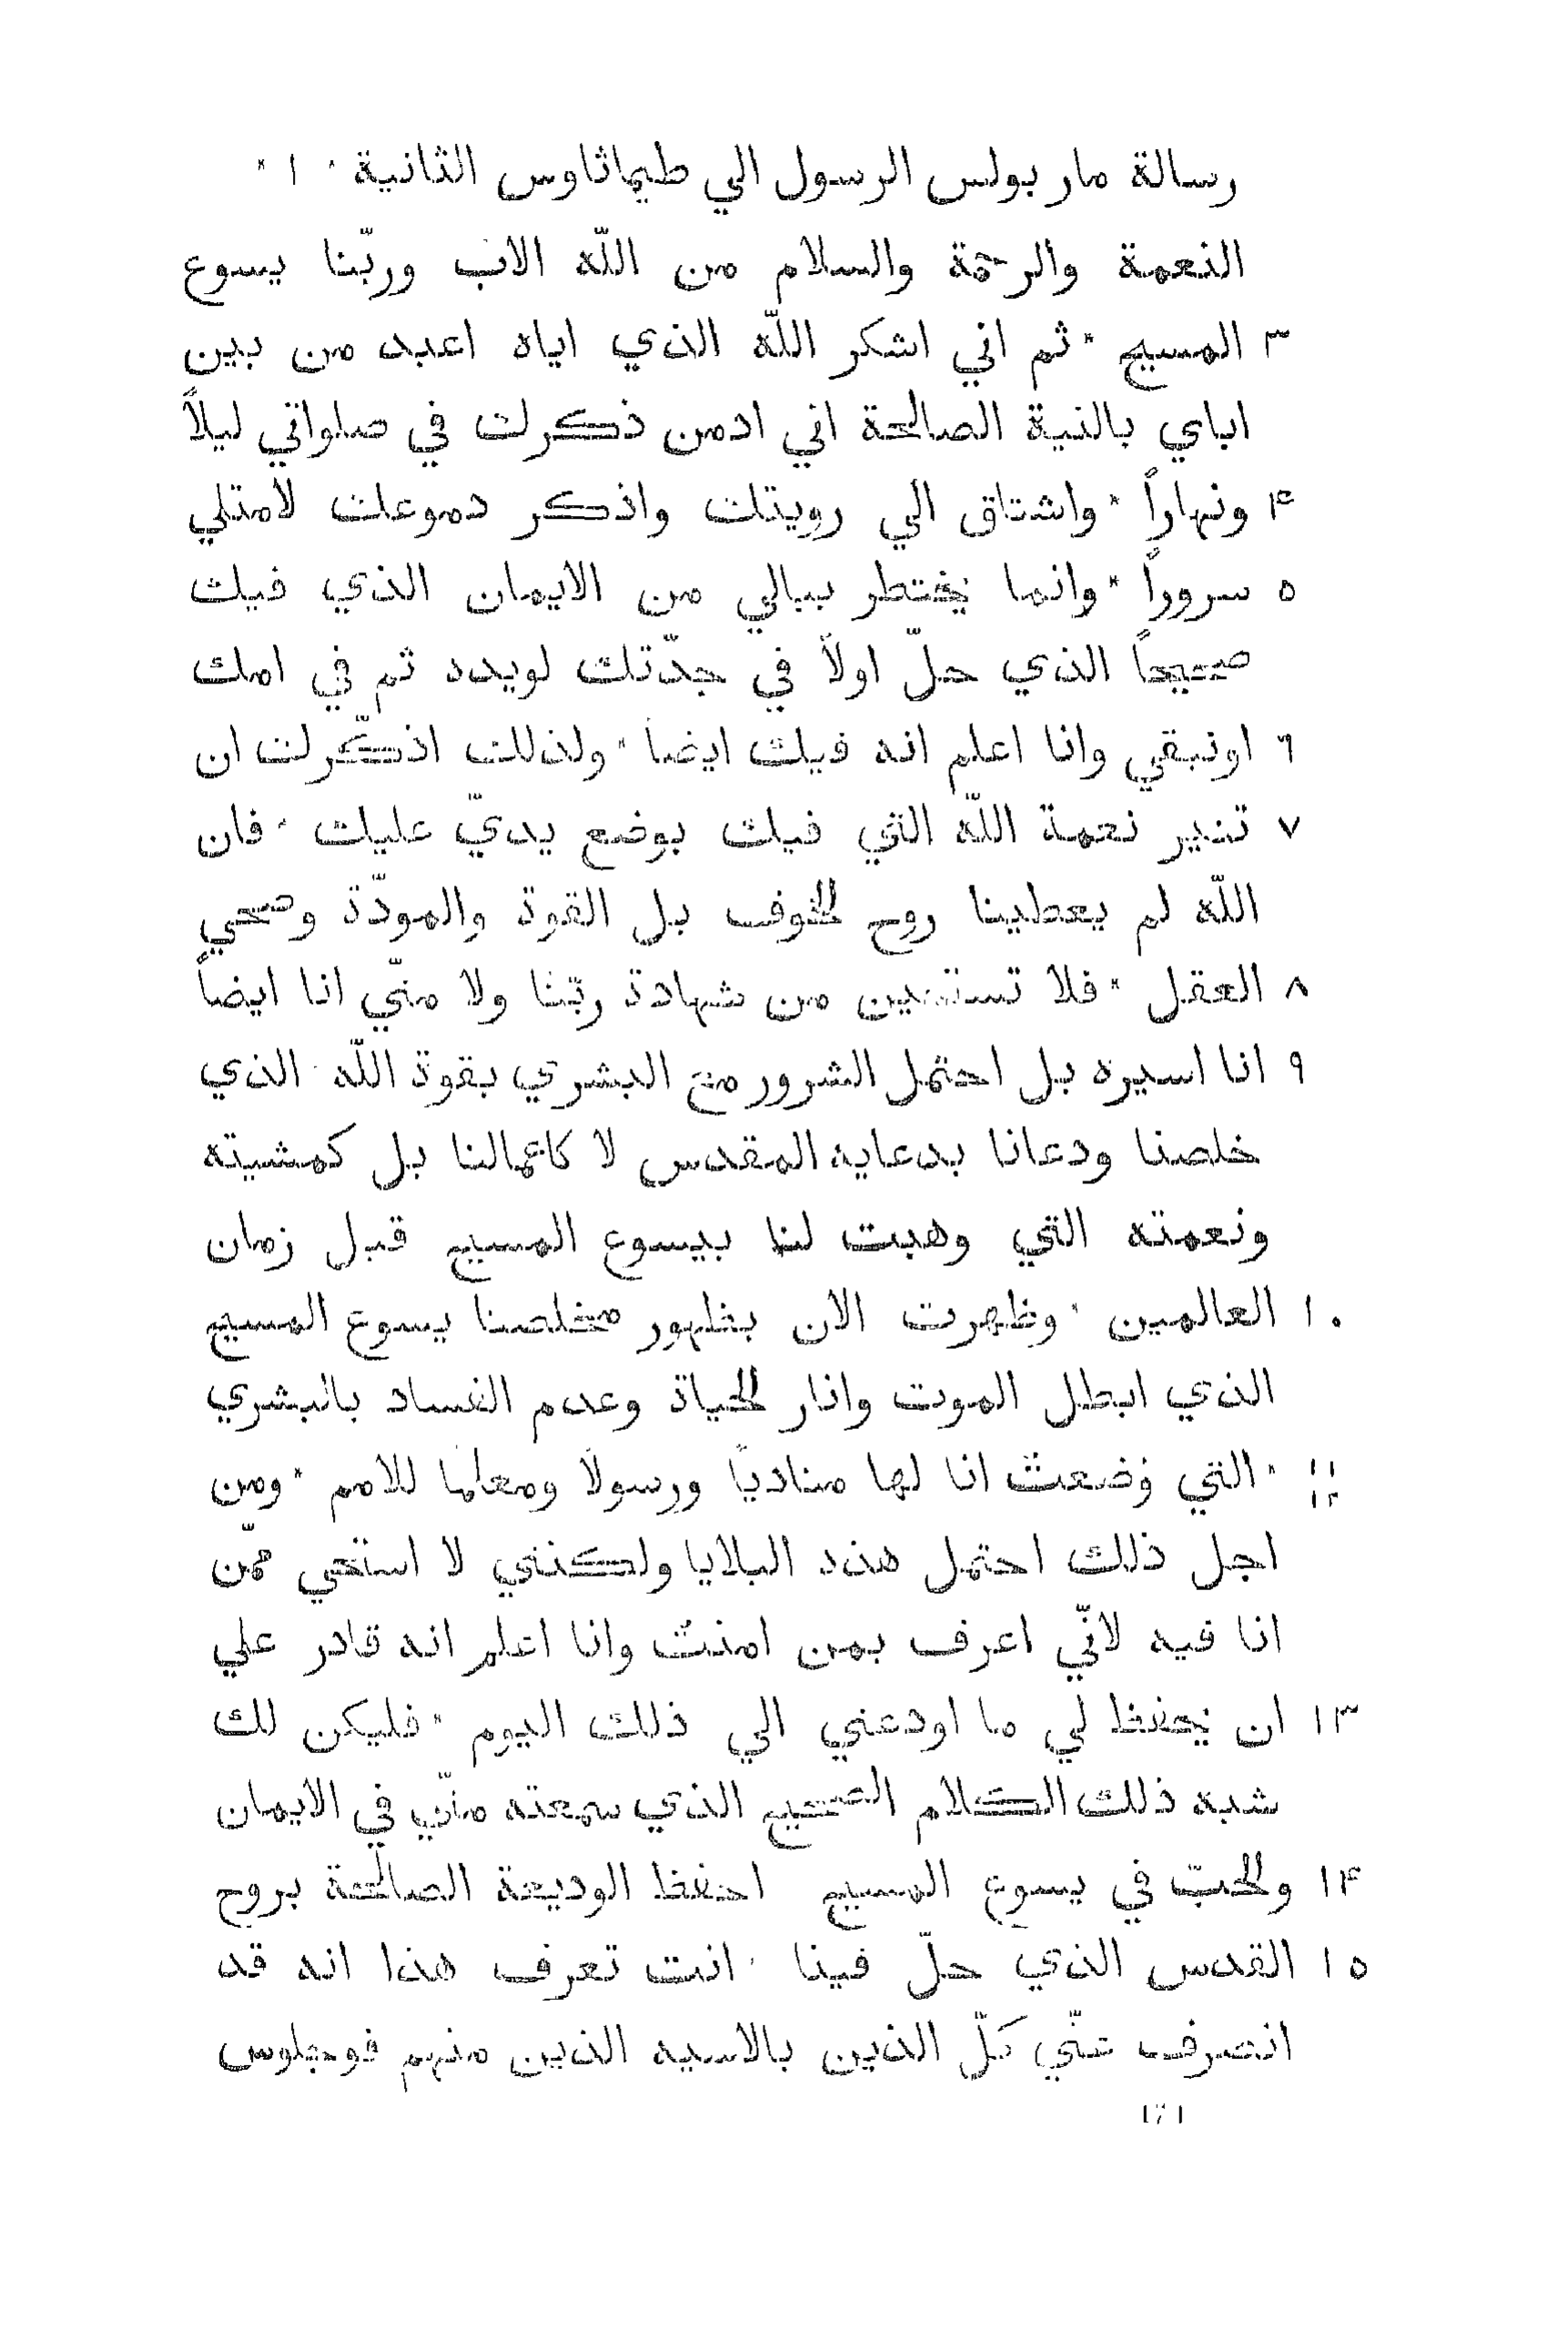 رسالة مار بولس الرسول الي طيماثاوس الثانية * ١ *
النعمة والرحمة والسلام من اللّه الاب وربّنا يسوع
٣ المسيح * ثم اني اشكر اللّه الذي اياه اعبد من بين
اباي بالنية الصالحة اني ادمن ذكرك في صلواتي ليلاً
۴ ونهاراً * واشتاق الي رويتك واذكر دموعك لامتلي
٥ سروراً * وانما يخطر ببالي من الايمان الذي فيك
صحيحاً الذي حلّ اولاً في جدّتك لويدد ثم في امك
٦ اونيقي وانا اعلم انه فيك ايضاً * ولذلك اذكّرك ان
٧ تنير نعمة اللّه التي فيك بوضع يديّ عليك * فان
اللّه لم يعطينا روح الخوف بل القوة والمودّة وصحي
٨ العقل * فلا تستحين من شهادة ربّنا ولا منّي انا ايضاً
٩ انا اسيره بل احتمل الشرور مع البشري بقوة اللّه * الذي
خلصنا ودعانا بدعايه المقدس لا كاعمالنا بل كمشيته
ونعمته التي وهبت لنا بيسوع المسيح قبل زمان
١٠ العالمين * وظهرت الان بظهور مخلصنا يسوع المسيح
الذي ابطل الموت وانار الحياة وعدم الفساد بالبشري
١١ * التي وُضعتُ انا لها منادياً ورسولاً ومعلما للامم * ومن ١٢
اجل ذلك احتمل هذه البلايا ولكنني لا استحي ممّن
انا فيه لانّي اعرف بمن امنتُ وانا اعلم انه قادر علي
١٣ ان يحفظ لي ما اودعني الي ذلك اليوم * فليكن لك
شبه ذلك الكلام الصحيح الذي سمعته منّي في الايمان
١۴ والحبّ في يسوع المسيح احفظ الوديعة الصالحة بروح
١٥ القدس الذي حلّ فينا * انت تعرف هذا انه قد
انصرف عنّي كلّ الذين بالاسيه الذين منهم فوجلوس
١٦١